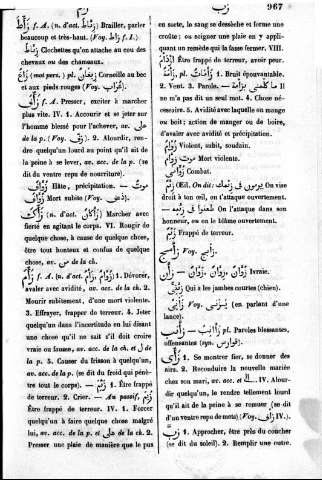 زبـ
967
زاط f. A. (n. d'act. زئاط) Brailler, parler
beaucoup et très-haut. (Voy. زاط f. I.).
زئاط Clochettes qu'on attache au cou des
chevaux ou des chameaux.
زاغ (mot pers.) pl. زيغان Corneille au bec
et aux pieds rouges (Voy. غراب).
زأف f. A. Presser, exciter à marcher
plus vite. IV. 1. Accourir et se jeter sur
l'homme blessé pour l'achever, av. على
de la p. (Voy. زف). 2. Alourdir, ren-
dre quelqu'un lourd au point qu'il ait
de la peine à se lever, av. acc. de la p. (se
dit du ventre repu de nourriture).
زؤاف Hâte, précipitation. — موت
زؤاف Mort subite (Voy. ذعاف).
زأك (n. d'act. زأكان) Marcher avec
fierté en agitant le corps. VI. Rougir de
quelque chose, à cause de quelque chose,
être tout honteux et confus de quelque
chose, av. من de la ch.
زأم f. A. (n. d'act. زأم, زؤام) 1. Dévorer,
avaler avec avidité, av. acc. de la ch. 2.
Mourir subitement, d'une mort violente.
3. Effrayer, frapper de terreur. 4. Jeter
quelqu'un dans l'incertitude en lui disant
une chose qu'il ne sait s'il doit croire
vraie ou fausse, av. acc. de la ch. et ل de
la p. 5. Causer du frisson à quelqu'un,
av. acc. de la p. (se dit du froid qui pénè-
tre tout le corps). — زئم 1. Être frappé
de terreur. 2. Crier. — Au passif, زئم
Être frappé de terreur. IV. 1. Forcer
quelqu'un à faire quelque chose malgré
lui, av. acc. de la p. et على de la ch. 2.
Presser une plaie de manière que la peau
en sorte, le sang se dessèche et forme une
croûte; ou soigner une plaie en y appli-
quant un remède qui la fasse fermer. VIII.
Être frappé de terreur, avoir peur.
زأمة, pl. زأمات 1. Bruit épouvantable.
2. Vent. 3. Parole. — ما كلمني بزأمة Il
ne m'a pas dit un seul mot. 4. Chose né-
cessaire. 5. Avidité avec laquelle on mange
ou boit; action de manger ou de boire,
d'avaler avec avidité et précipitation.
زؤام Violent, subit, soudain.
موت زؤام Mort violente.
زؤام Combat.
زئم Œil. On dit: يرمون في زئمك On vise
droit à ton œil, on t'attaque ouvertement.
— طعنوا في زئمه On l'attaque dans son
honneur, on le blâme ouvertement.
زئم Frappé de terreur.
زأمج Voy. زأبج.
زأن — زئان, زؤان, زوان Ivraie.
زئني Qui a les jambes courtes (chien).
يزأني Voy. يزني (en parlant d'une
lance).
زأنب — زآنب pl. Paroles blessantes,
offensantes (syn. قوارص).
زأى 1. Se montrer fier, se donner des
airs. 2. Reconduire la nouvelle mariée
chez son mari, av. acc. et الى. IV. Alour-
dir quelqu'un, le rendre tellement lourd
qu'il ait de la peine à se remuer (se dit
d'un ventre repu de mets) (Voy. زأف IV.).
زب 1. Approcher, être près du coucher
(se dit du soleil). 2. Remplir une outre.